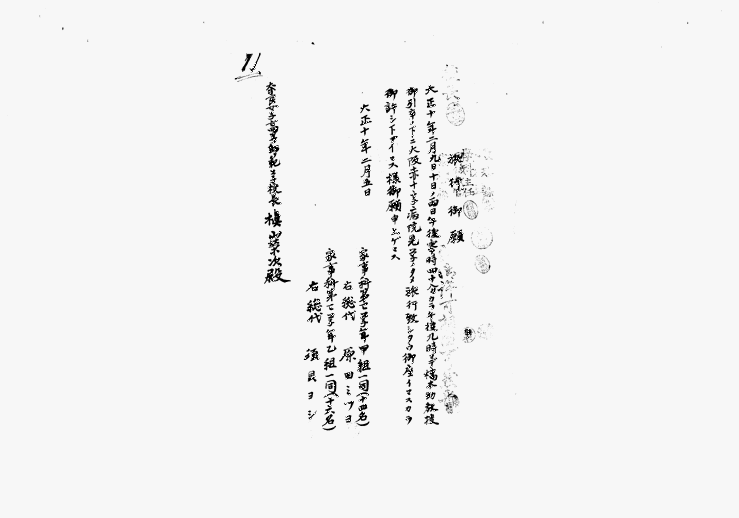 旅行御願
大正十年二月九日十日ノ両日午後零時四十分カラ午後九時半橋本助教授
御引率ノ下ニ大阪赤十字病院見学ノタメ旅行致シタウ御座イマスカラ
御許シ下サイマス様御願申上ゲマス
大正十年二月五日
家事科第二学年甲組一同(十四名)
右総代 原田ミツヨ
家事科第二学年乙組一同(十六名)
右総代 須貝ヨシ
奈良女子高等師範学校長 槇山栄次殿
71